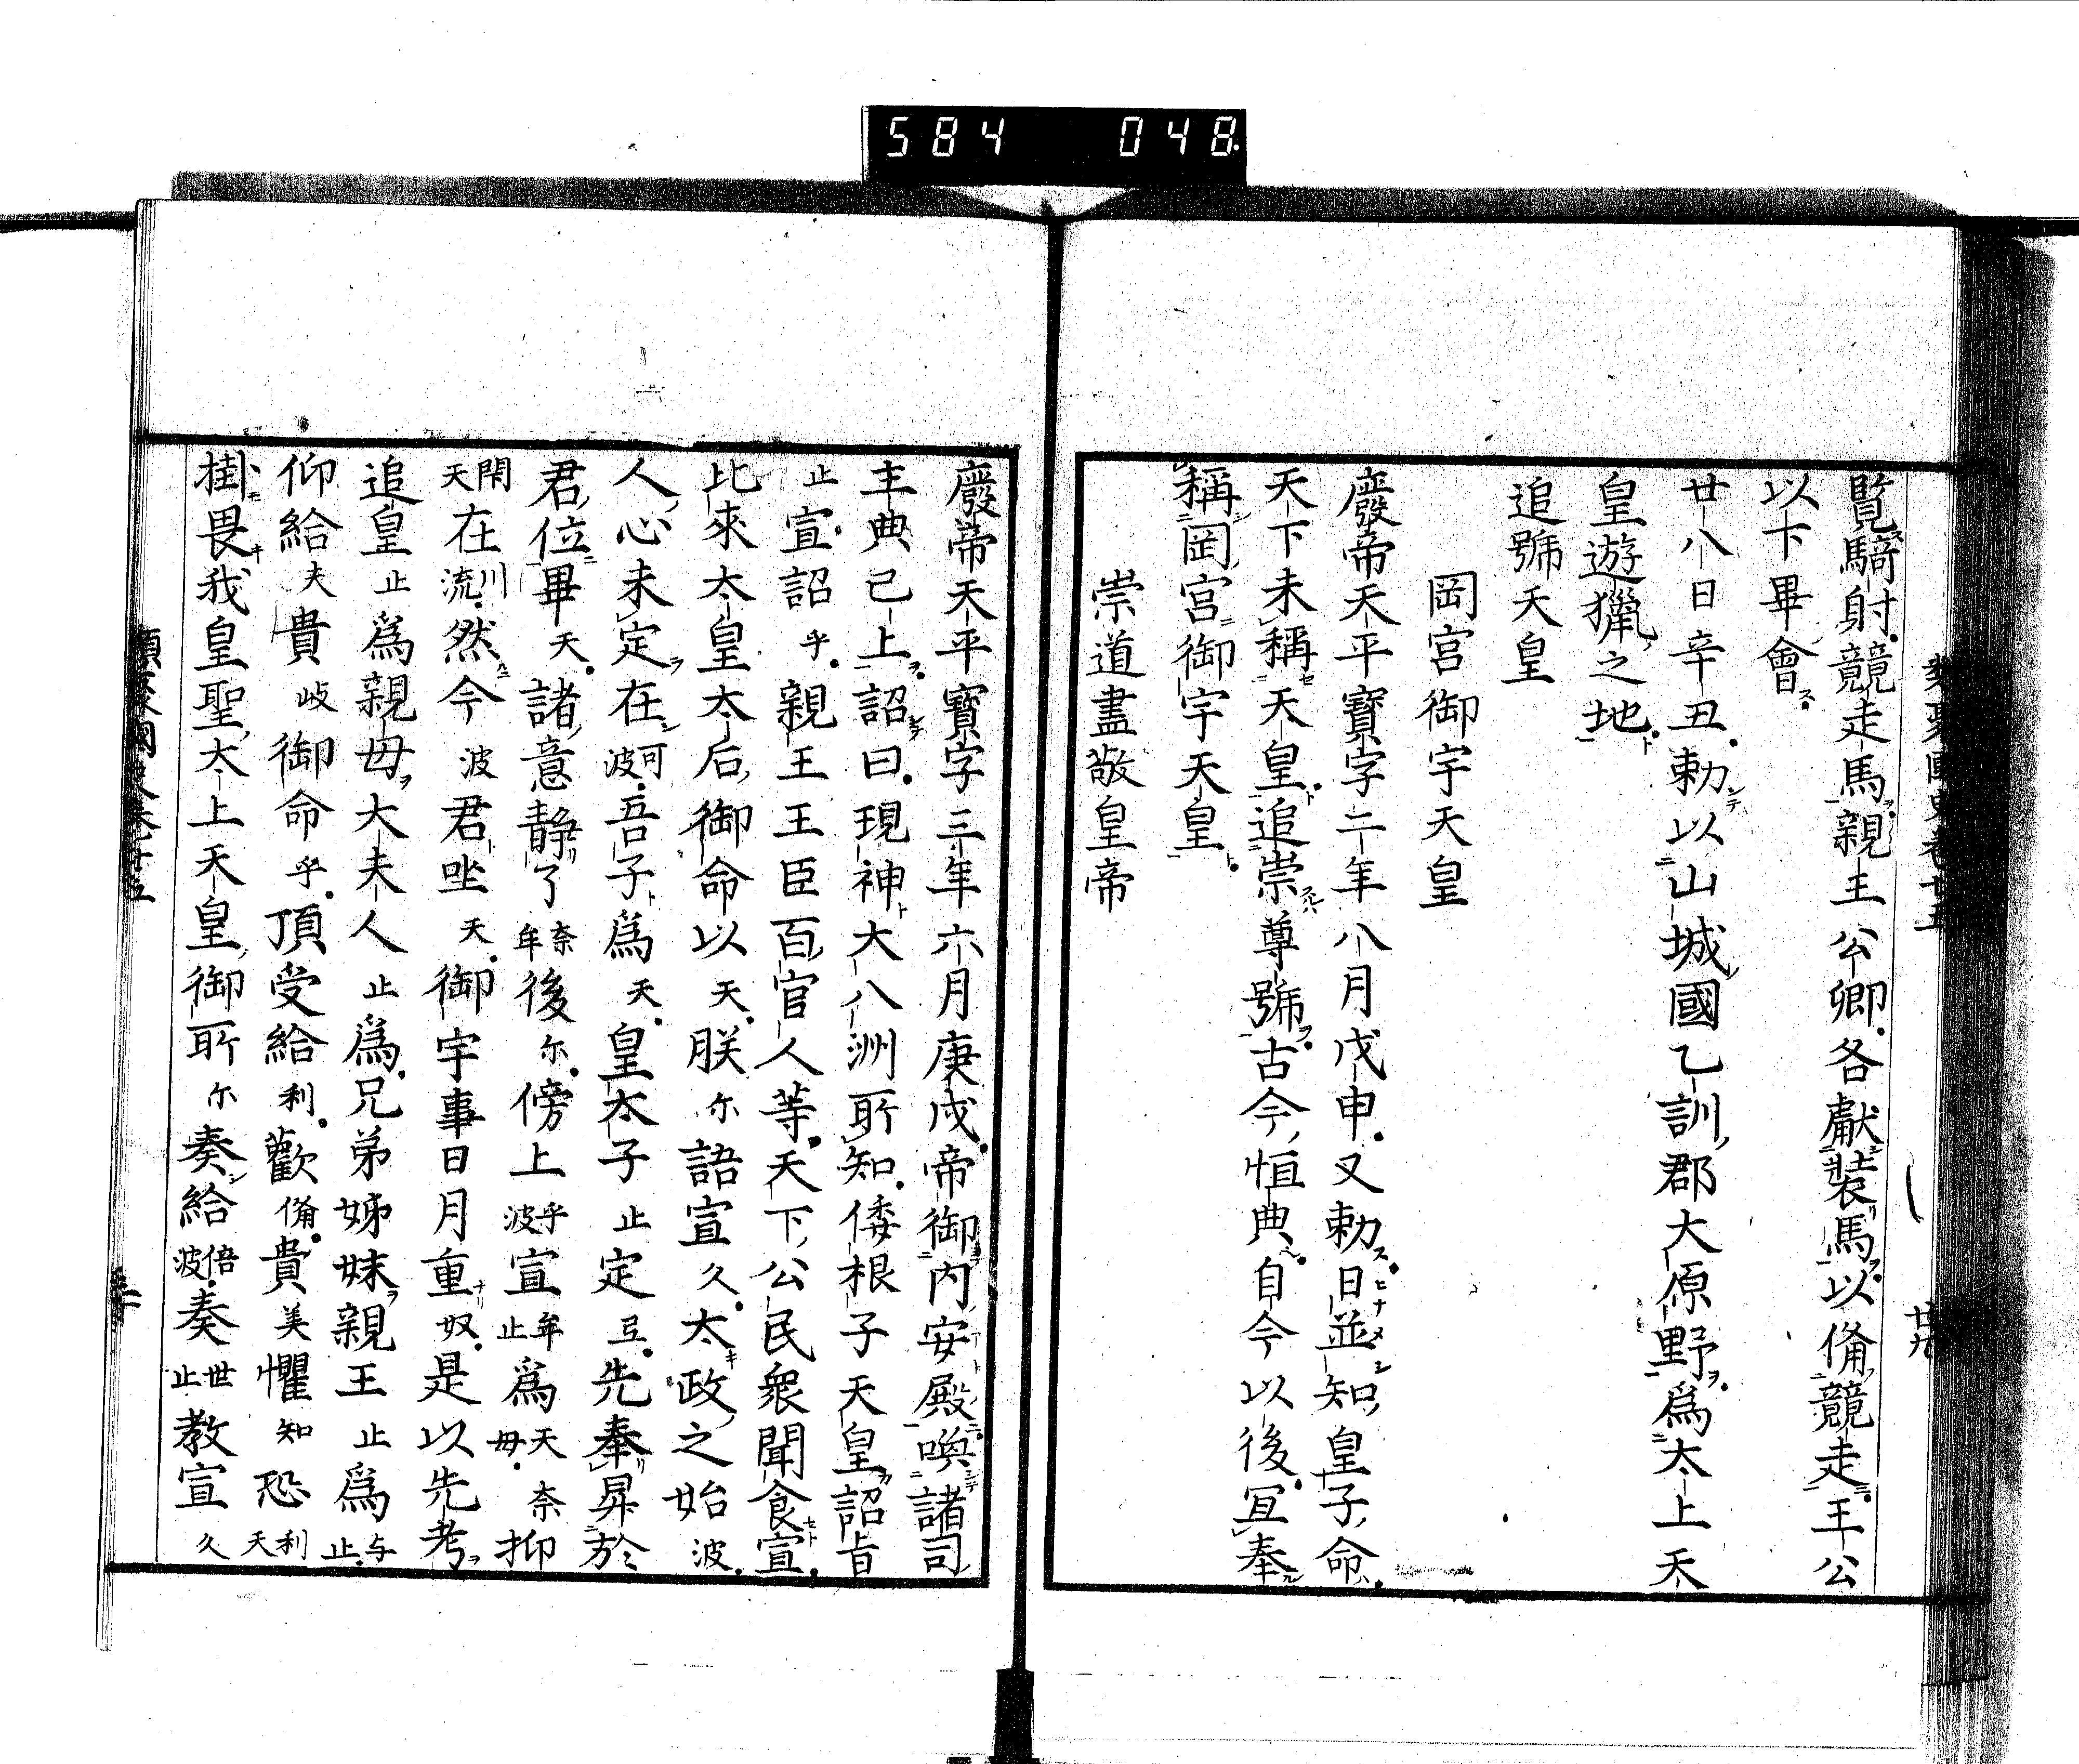 584 048
覧騎射競走馬親王公卿各獻裝馬以備競走王公
以下畢會
廿八日辛丑勅以山城國乙訓郡大原野爲太上天
皇遊獵之地
追號天皇
岡宮御宇天皇
廢帝天平寶字二年八月戊申又勅日並知皇子命
天下未稱天皇追崇尊號古今恒典自今以後宜奉
稱岡宮御宇天皇
崇道盡敬皇帝
廢帝天平寶字三年六月庚戌帝御內安殿喚諸司
主典已上詔曰現神大八洲所知倭根子天皇詔旨
止宣詔乎親王王臣百官人等天下公民衆聞食宣
比來太皇太后御命以天朕尓語宣久太政之始波
人心未定在可波吾子爲天皇太子止定弖先奉昇於
君位畢天諸意靜了奈牟後尓傍上乎波宣牟止爲天奈毋抑
閇天在川流然今波君坐天御宇事日月重奴是以先考
追皇止爲親毋大夫人止爲兄弟姊妹親王止爲与止
仰給夫貴岐御命乎頂受給利歡備貴美懼知恐利天
掛畏我皇聖太上天皇御所尓奏給倍波奏世止教宣久